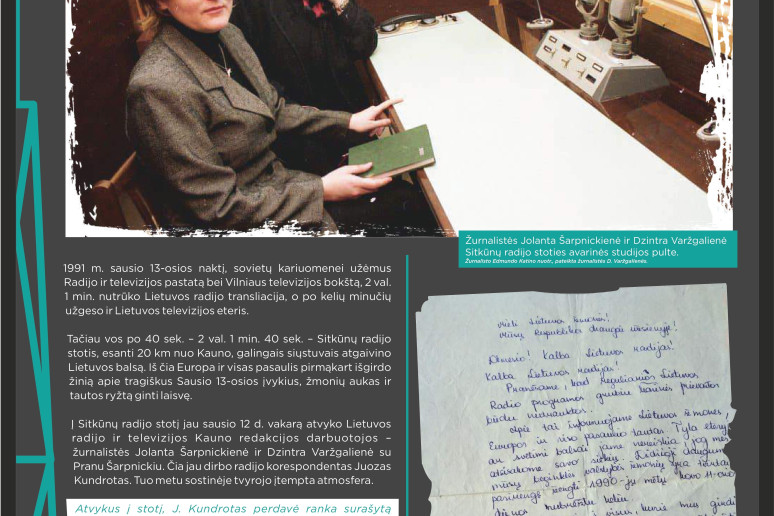 Žurnalistės Jolanta Šarpnickienė ir Dzintra Varžgalienė
Sitkūnų radijo stoties avarinės studijos pulte.
Žurnalisto Edmundo Katino nuotr., pateikta žurnalistės D. Varžgalienės.
1991 m. sausio 13-osios naktį, sovietų kariuomenei užėmus
Radijo ir televizijos pastatą bei Vilniaus televizijos bokštą, 2 val.
1 min. nutrūko Lietuvos radijo transliacija, o po kelių minučių
užgeso ir Lietuvos televizijos eteris.
Tačiau vos po 40 sek. – 2 val. 1 min. 40 sek. – Sitkūnų radijo
stotis, esanti 20 km nuo Kauno, galingais siųstuvais atgaivino
Lietuvos balsą. Iš čia Europa ir visas pasaulis pirmąkart išgirdo
žinią apie tragiškus Sausio 13-osios įvykius, žmonių aukas ir
tautos ryžtą ginti laisvę.
Į Sitkūnų radijo stotį jau sausio 12 d. vakarą atvyko Lietuvos
radijo ir televizijos Kauno redakcijos darbuotojos –
žurnalistės Jolanta Šarpnickienė ir Dzintra Varžgalienė su
Pranu Šarpnickiu. Čia jau dirbo radijo korespondentas Juozas
Kundrotas. Tuo metu sostinėje tvyrojo įtempta atmosfera.
Atvykus į stotį, J. Kundrotas perdavė ranka surašytą
Mieli Lietuvos žmonės!
Mūsų Respublikos draugai užsienyje!
Dėmesio! Kalba Lietuvos radijas!
Kalba Lietuvos radijas!
Pranešame, kad reguliarios Lietuvos
Radio programos
Apie tai informuojame Lietuvos žmones,
Europos ir viso pasaulio tautas. Tyla eteryje
ar svetimi balsai jame nereiškia, jog mes
atsisakome savo siekių.